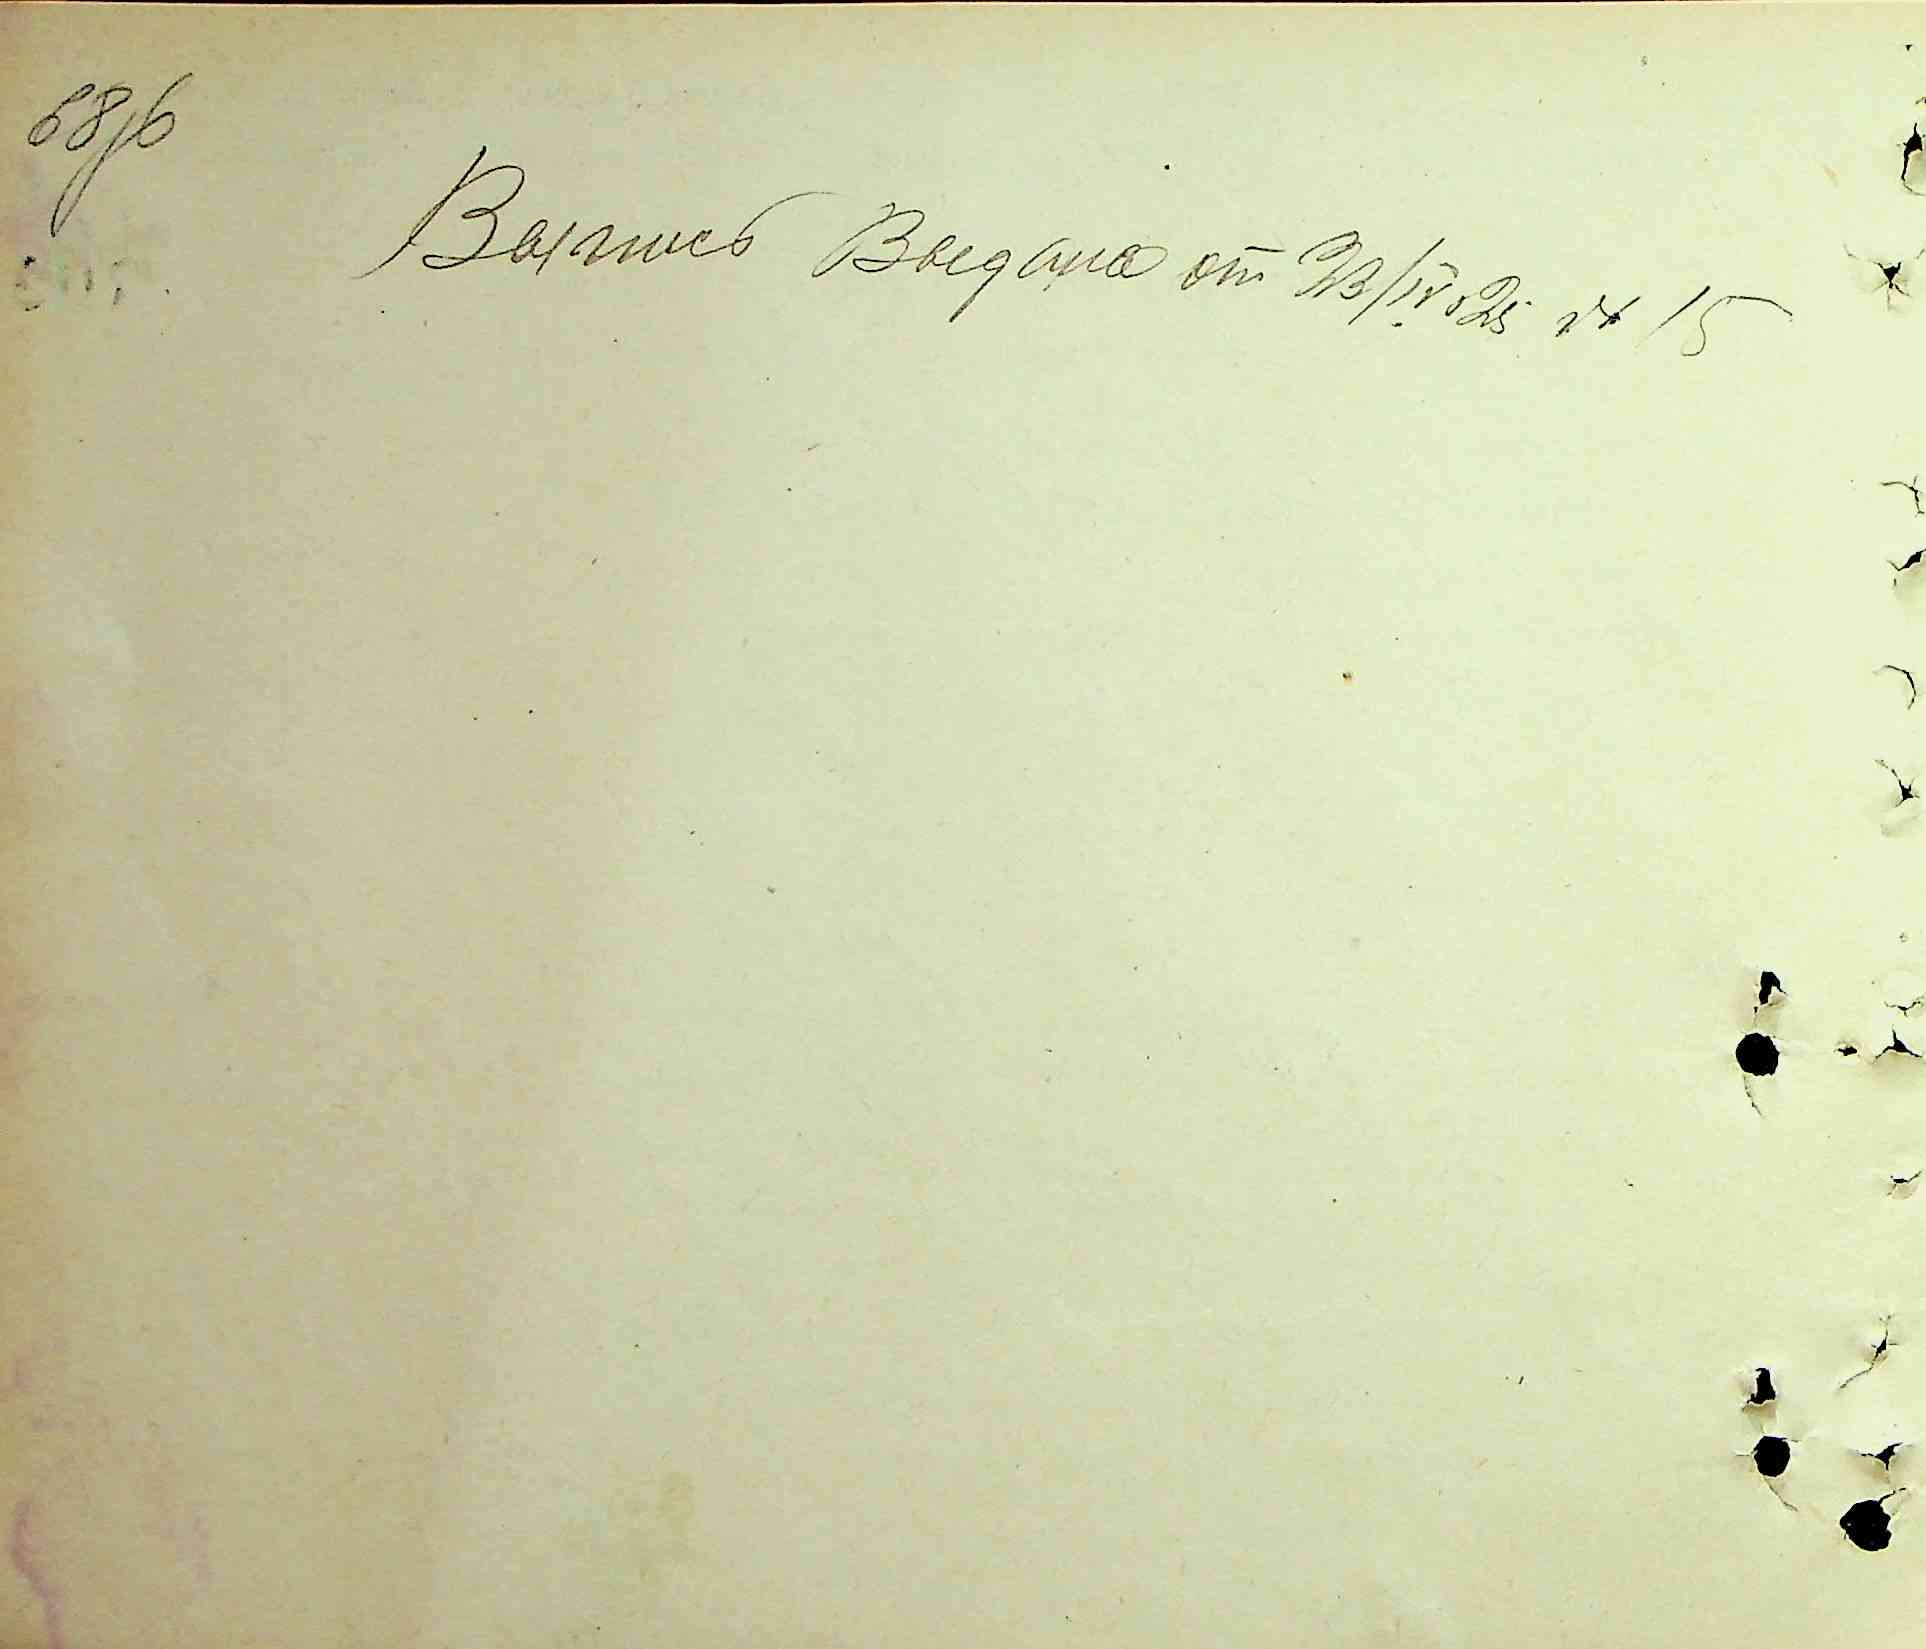 68об
Выпись Выдана от 23/IV 25 № 15